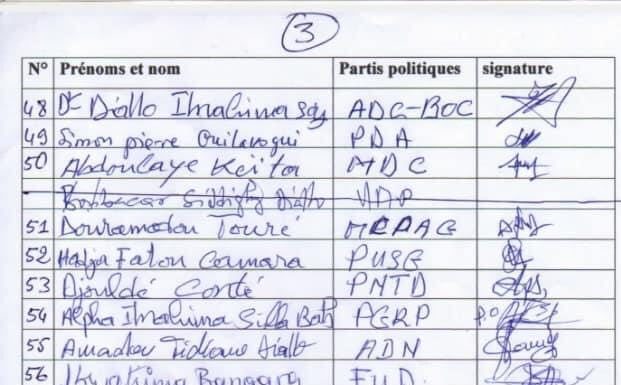 3
N° Prénoms et nom Partis politiques signature
48 Dr Diallo Ibrahima Sory ADC-BOC
49 Simon pierre Ouilavogui PDA
50 Abdoulaye Keita MDC
Boubacar Siddighy Diallo
51 Douramodou Touré
52 Hadja Fatou Camara PUSG
53 Djouldé Conté PNTD
54 Alpha Ibrahima Silla Bah PGRP P.O
55 Amadou Tidiane Diallo ADN
56 Bangoura